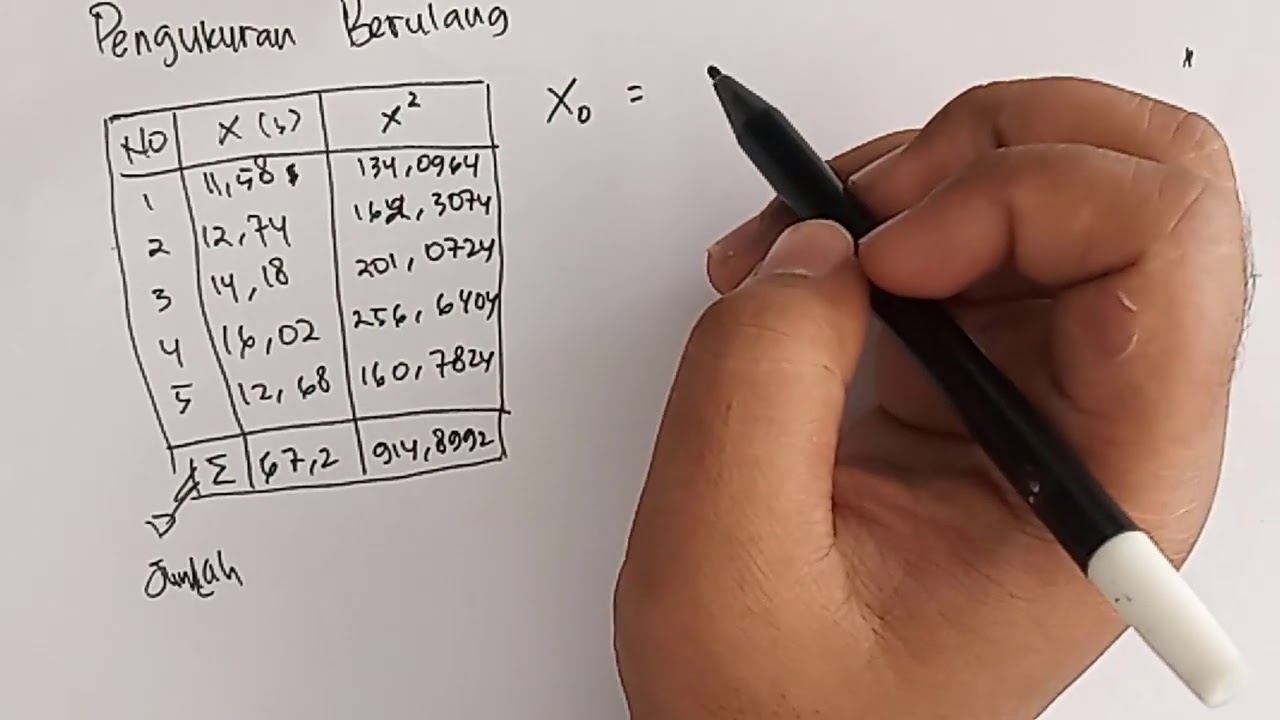 Pengukuran Berulang
X₀ =
NO X (s) X²
1 11,58 134,0964
2 12,74 162,3074
3 14,18 201,0724
4 16,02 256,6404
5 12,68 160,7824
Σ 67,2 914,8992
Jumlah